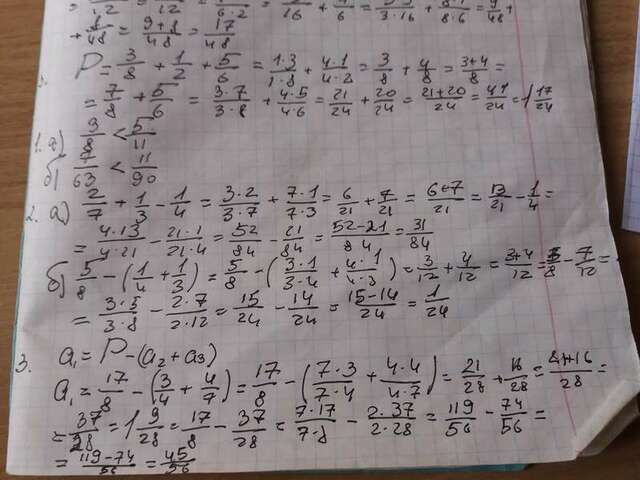 + 1/48 = 9+8/48 = 17/48
P = 3/8 + 1/2 + 5/6 = 1·3/1·8 + 4·1/4·2 = 3/8 + 4/8 = 3+4/8 =
= 7/8 + 5/6 = 3·7/3·8 + 4·5/4·6 = 21/24 + 20/24 = 21+20/24 = 41/24 = 1 17/24
1. а) 3/8 < 5/11
б) 7/63 < 11/90
2. а) 2/7 + 1/3 - 1/4 = 3·2/3·7 + 7·1/7·3 = 6/21 + 7/21 = 6+7/21 = 13/21 - 1/4 =
= 4·13/4·21 - 21·1/21·4 = 52/84 - 21/84 = 52-21/84 = 31/84
б) 5/8 - (1/4 + 1/3) = 5/8 - (3·1/3·4 + 4·1/4·3) = 3/12 + 4/12 = 3+4/12 = 5/8 - 7/12 =
= 3·5/3·8 - 2·7/2·12 = 15/24 - 14/24 = 15-14/24 = 1/24
3. a₁ = P - (a₂ + a₃)
a₁ = 17/8 - (3/4 + 4/7) = 17/8 - (7·3/7·4 + 4·4/4·7) = 21/28 + 16/28 = 21+16/28 =
= 37/28 = 1 9/28 = 17/8 - 37/28 = 7·17/7·8 - 2·37/2·28 = 119/56 - 74/56 =
= 119-74/56 = 45/56